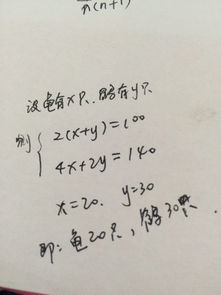 n(n+1)
设龟有x只,鹤有y只
则
2(x+y)=100
4x+2y=140
x=20. y=30
即:龟20只,鹤30只.